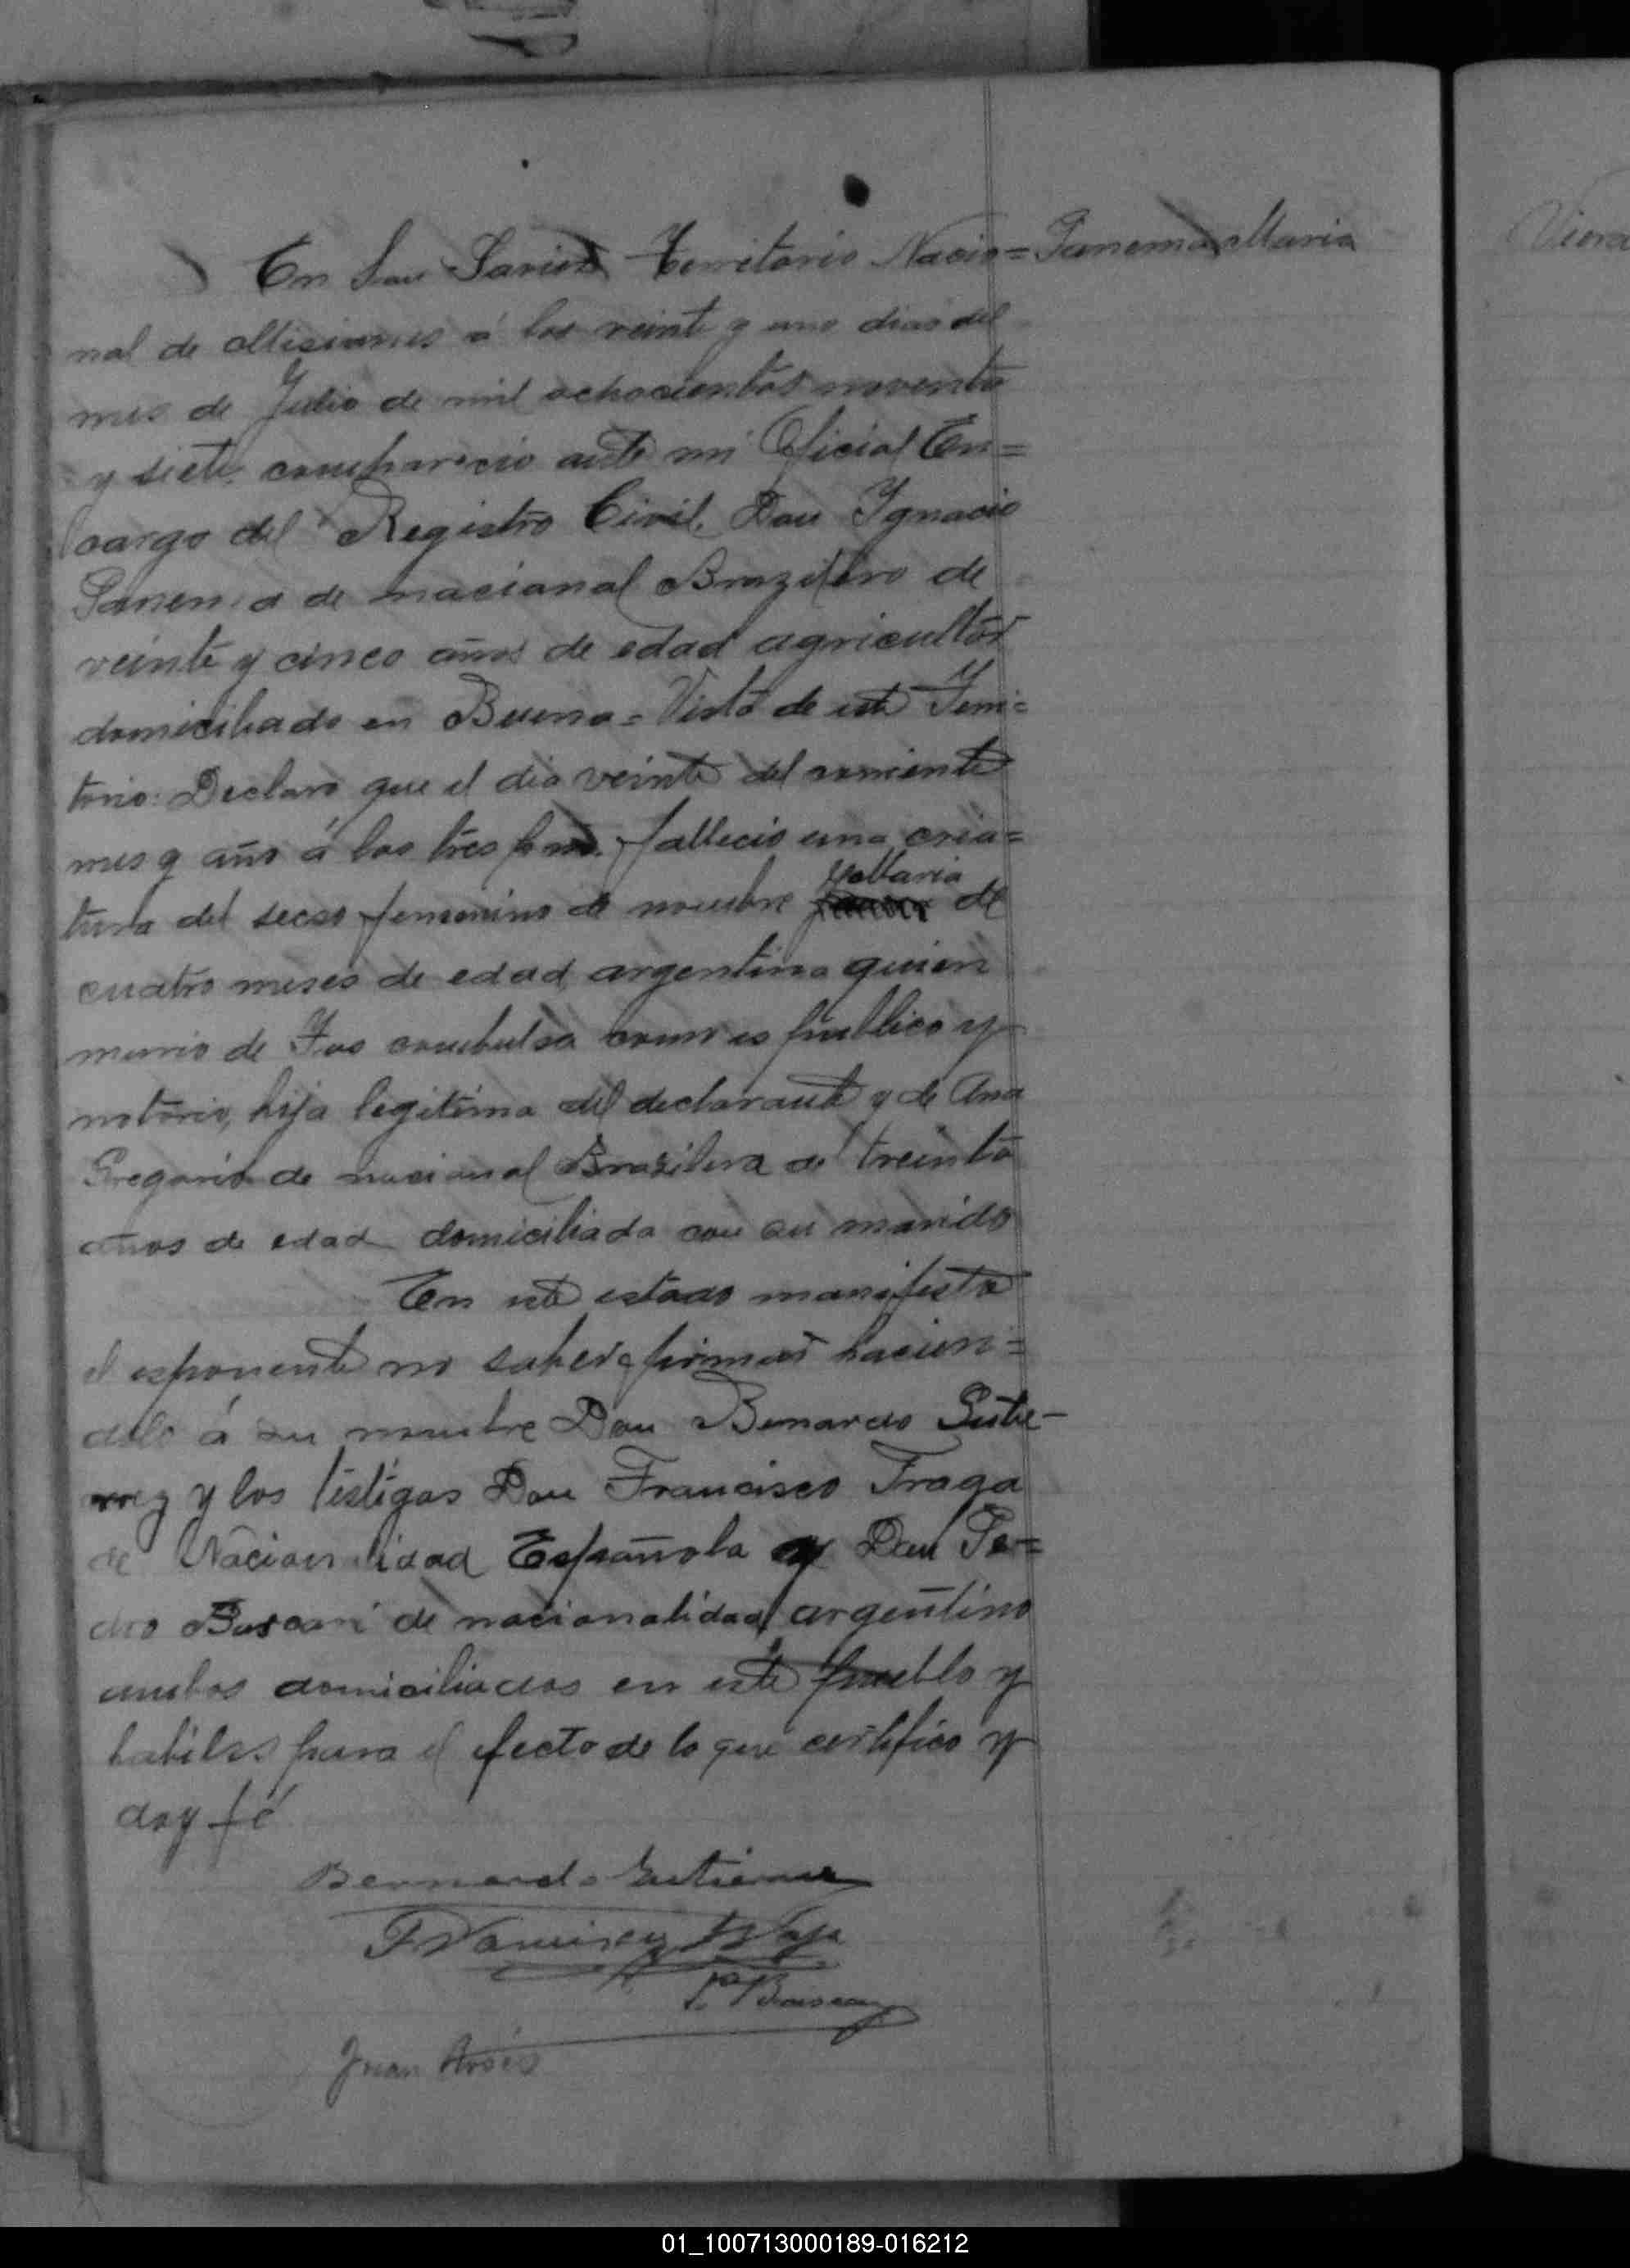 En San Javier Territorio Nacio=
Panema Maria
nal de Misiones á los veinte y uno dias del
mes de Julio de mil ochocientos noventa
y siete, comparecio ante mi Oficial En=
cargo del Registro Civil. Don Ignacio
Panema de nacional Brazilero de
veinte y cinco años de edad agricultor
domiciliado en Buena=Vista de este Terri=
torio: Declaro que el dia veinte del corriente
mes y año á las tres p m. fallecio una cria=
tura del secso femenino de nombre Maria de
cuatro meses de edad argentina quien
murio de Tos combulsa como es publico y
notorio, hija legitima del declarante y de Ana
Gregoria de nacional Brazilera de treinta
años de edad domiciliada con su marido
En este estado manifesta
el esponente no saber firmar hacien=
dolo á su nombre Don Bernardo Gutie-
rrez y los testigos Don Francisco Fraga
de Nacionalidad Española y Don Pe=
dro Bascari de nacionalidad argentino
ambos domiciliados en este pueblo y
habiles para el efecto de lo que certifico y
doy fé
Bernardo Gutierrez
Francisco Fraga
P. Bascary
Juan
Viera
01_100713000189-016212